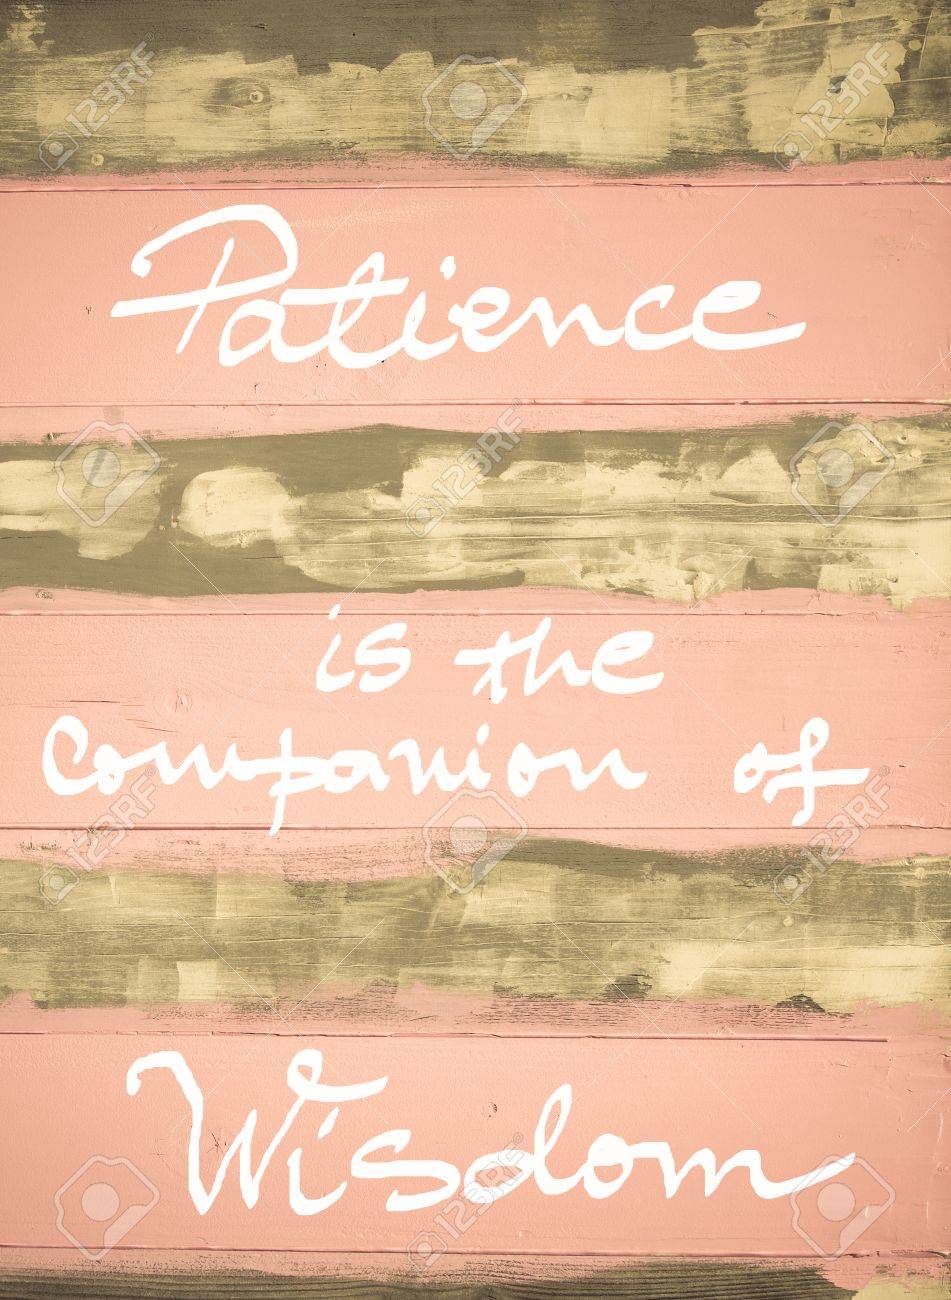 Patience
is the
Companion of
Wisdom
123RF